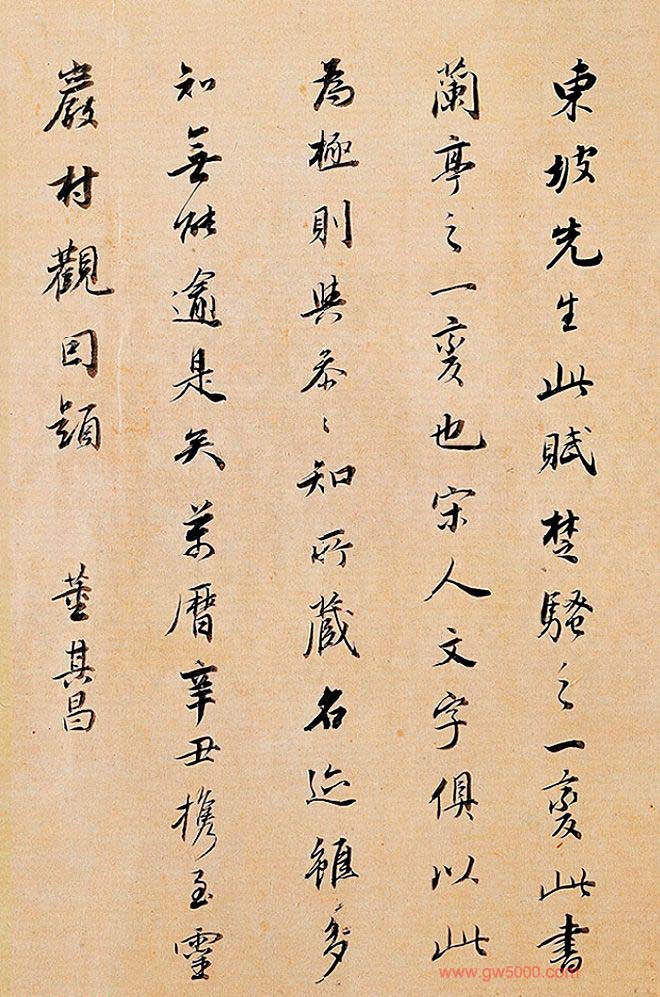 東坡先生此賦楚騷之一變此書
蘭亭之一變也宋人文字俱以此
為極則與參參知所藏名迹雖多
知無能逾是矣萬曆辛丑攜至靈
巖村觀因題　董其昌
www.gw5000.com